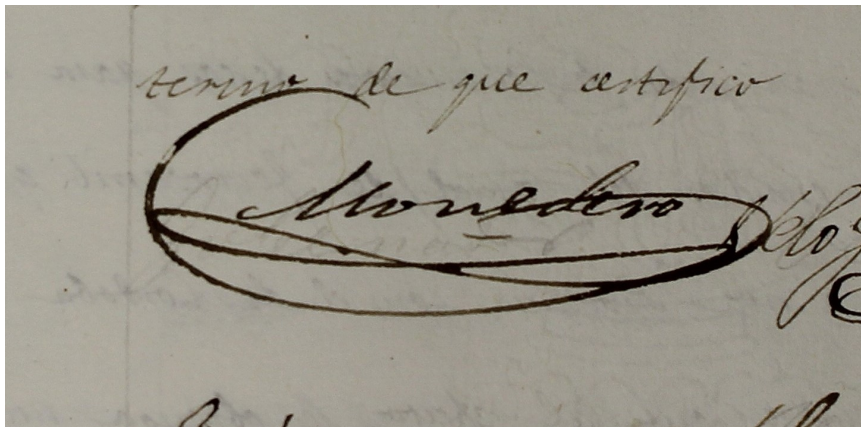 termino de que certifico
Monedero